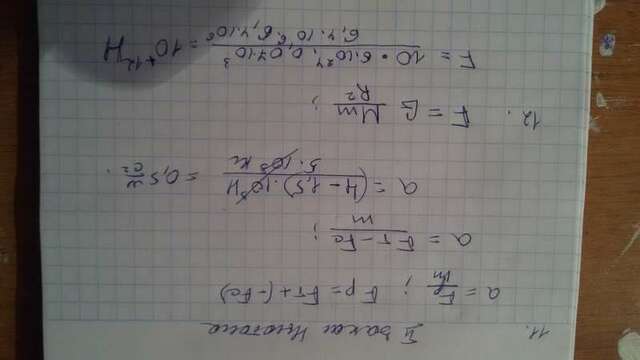 11. II Закон Ньютона
a = Fp/m ; Fp = Fт + (-Fc)
a = (Fт - Fc)/m ;
a = (4 - 1,5)·10³ Н / 5·10³ кг = 0,5 м/с².
12. F = G Mm/R² ;
F = 10 · 6·10²⁴ · 0,07·10³ / 6,4·10⁶ · 6,4·10⁶ = 10⁺¹² Н